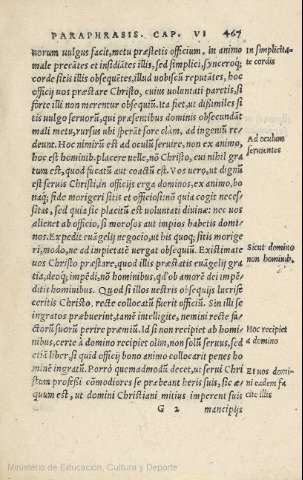 PARAPHRASIS. CAP. VI 467
norum uulgus facit, metu præstetis officium, in animo
male precātes et insidiātes illis, sed simplici, syncęroq;
corde sitis illis obsequētes, illud uobiscū reputātes, hoc
officij uos præstare Christo, cuius uoluntati paretis, si
forte illi non merentur obsequiū. Ita fiet, ut dißimiles si
tis uulgo seruorū, qui præsentibus dominis obsecundāt
mali metu, rursus ubi sperāt fore clàm, ad ingeniū re=
deunt. Hoc nimirū est ad oculū seruire, non ex animo,
hoc est hominib. placere uelle, nō Christo, cui nihil gra
tum est, quod fucatū aut coactū est. Vos uero, ut dignū
est seruis Christi, in officijs erga dominos, ex animo, bo
naq; fide morigeri sitis et officiosi: nō quia cogit neces=
sitas, sed quia sic placitū est uoluntati diuinæ: nec uos
alienet ab officio, si morosos aut impios habetis domi=
nos. Expedit euāgelij negocio, ut his quoq; sitis morige
ri, modo, ne ad impietatē uergat obsequiū. Existimate
uos Christo præstare, quod illis præstatis euāgelij gra=
tia, deoq; impēdi, nō hominibus, qd' ob amorē dei impē=
ditis hominibus. Quod si illos nestris obsequijs lucrife
ceritis Christo, recte collocatū fuerit officiū. Sin illi se
ingratos præbuerint, tamē intelligite, nemini recte fa=
ctorū suorū perire præmiū. Id si non recipiet ab homi=
nibus, certe à domino recipiet olim, non solū seruus, sed
etiā liber, si quid officij bono animo collocarit penes ho
minē ingratū. Porrò quemadmodū decet, ut serui Chri
stum professi cōmodiores se præbeant heris suis, sic æ=
quum est, ut domini Christiani mitius imperent suis
G 2 mancipijs
In simplicita=
te cordis
Ad oculum
seruientes
Sicut domino
non hominib,
Hoc recipiet
a domino
Et uos domi
ni eadem fa
cite illis
Ministerio de Educación, Cultura y Deporte